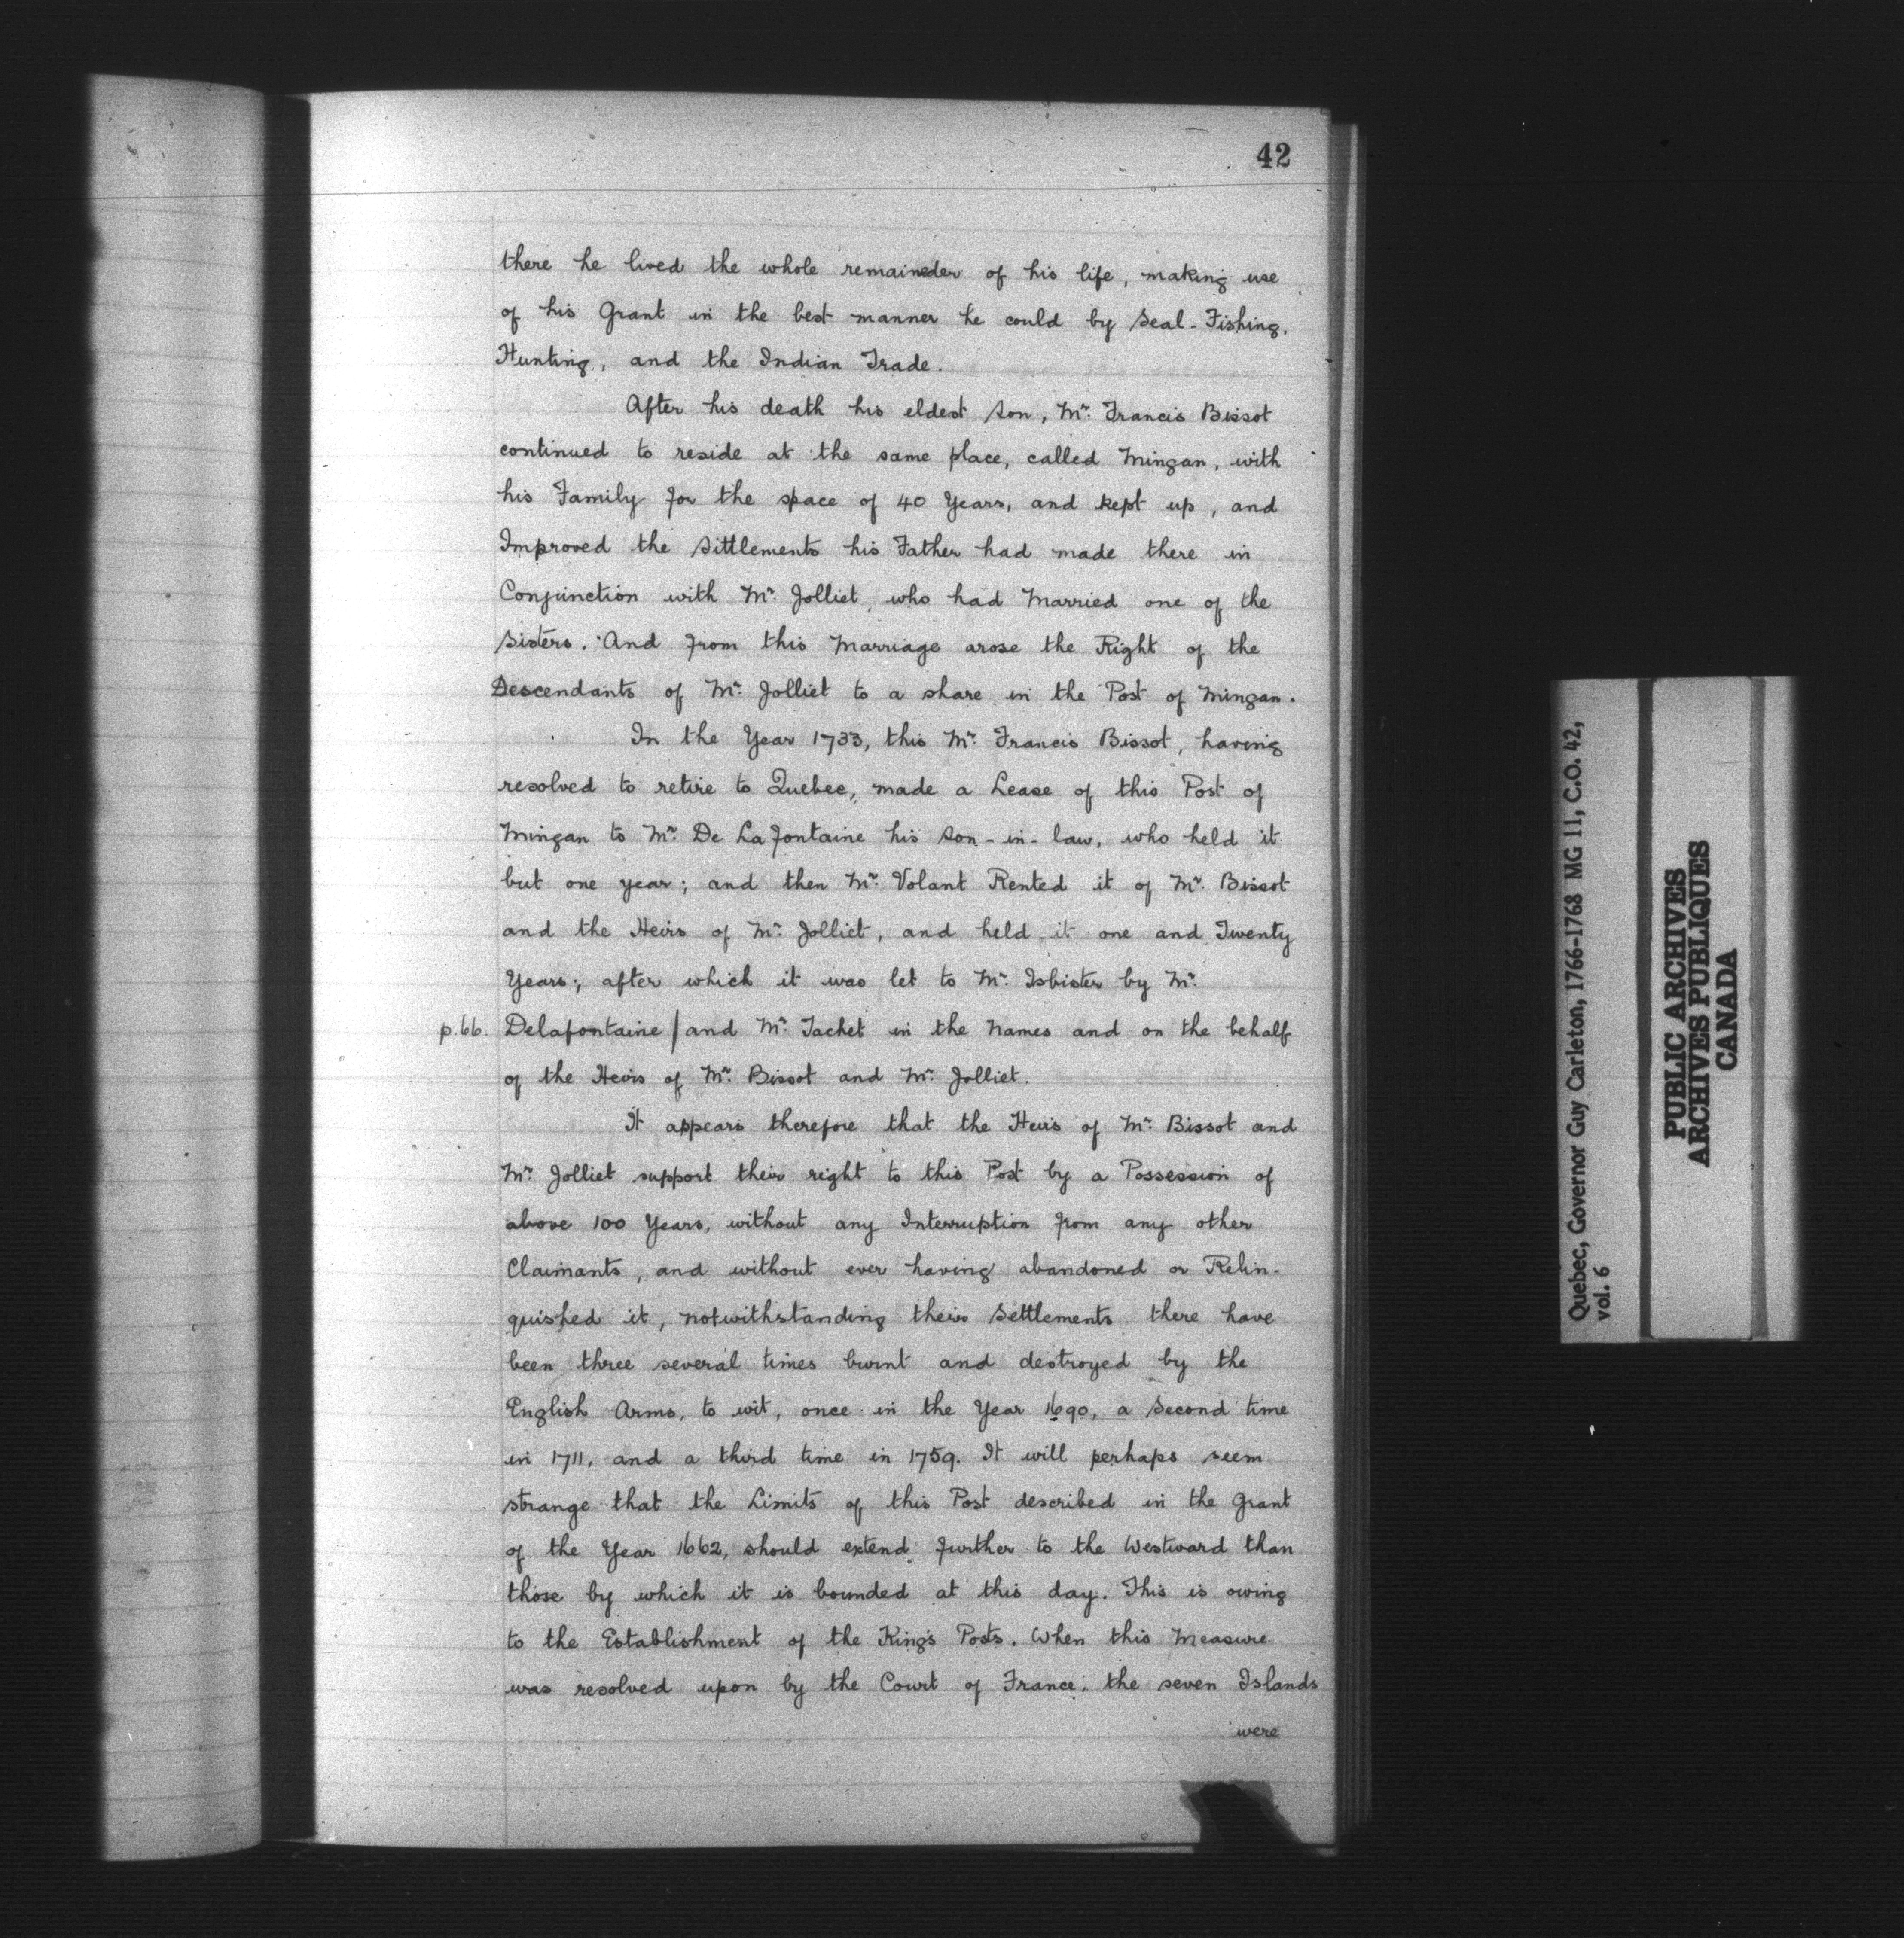 42
there he lived the whole remaineder of his life, making use
of his Grant in the best manner he could by Seal-Fishing,
Hunting, and the Indian Trade.
After his death his eldest Son, Mr. Francis Bissot
continued to reside at the same place, called Mingan, with
his Family for the space of 40 Years, and kept up, and
Improved the Sittlements his Father had made there in
Conjunction with Mr. Jolliet, who had Married one of the
Sisters. And from this Marriage arose the Right of the
Descendants of Mr. Jolliet to a share in the Post of Mingan.
In the Year 1733, this Mr. Francis Bissot, having
resolved to retire to Quebec, made a Lease of this Post of
Mingan to Mr. De La fontaine his Son-in-law, who held it
but one year; and then Mr. Volant Rented it of Mr. Bissot
and the Heirs of Mr. Jolliet, and held it one and Twenty
Years; after which it was let to Mr. Isbister by Mr.
p.66. Delafontaine / and Mr. Tachet in the Names and on the behalf
of the Heirs of Mr. Bissot and Mr. Jolliet.
It appears therefore that the Heirs of Mr. Bissot and
Mr. Jolliet support their right to this Post by a Possession of
above 100 Years, without any Interruption from any other
Claimants, and without ever having abandoned or Relin-
quished it, notwithstanding their Settlements there have
been three several times burnt and destroyed by the
English Arms, to wit, once in the Year 1690, a Second time
in 1711, and a third time in 1759. It will perhaps seem
strange that the Limits of this Post described in the Grant
of the Year 1662, should extend further to the Westward than
those by which it is bounded at this day. This is owing
to the Establishment of the King's Posts. When this Measure
was resolved upon by the Court of France, the seven Islands
were
Quebec, Governor Guy Carleton, 1766-1768 MG 11, C.O. 42,
vol. 6
PUBLIC ARCHIVES
ARCHIVES PUBLIQUES
CANADA